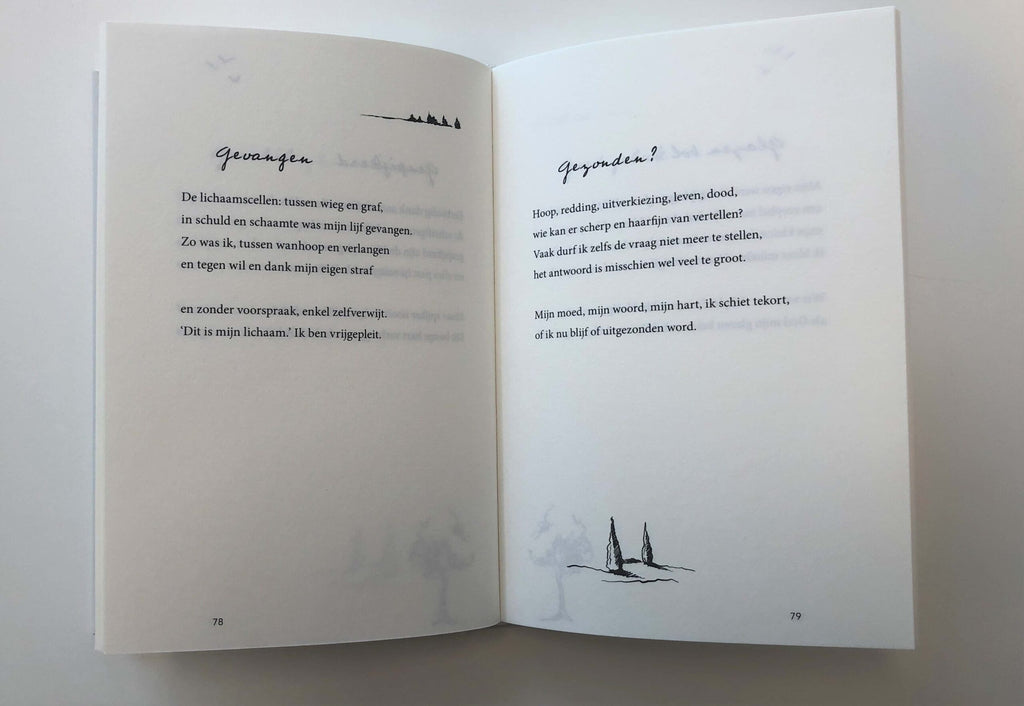 Gevangen
De lichaamscellen: tussen wieg en graf,
in schuld en schaamte was mijn lijf gevangen.
Zo was ik, tussen wanhoop en verlangen
en tegen wil en dank mijn eigen straf
en zonder voorspraak, enkel zelfverwijt.
‘Dit is mijn lichaam.’ Ik ben vrijgepleit.
78
Gezonden?
Hoop, redding, uitverkiezing, leven, dood,
wie kan er scherp en haarfijn van vertellen?
Vaak durf ik zelfs de vraag niet meer te stellen,
het antwoord is misschien wel veel te groot.
Mijn moed, mijn woord, mijn hart, ik schiet tekort,
of ik nu blijf of uitgezonden word.
79